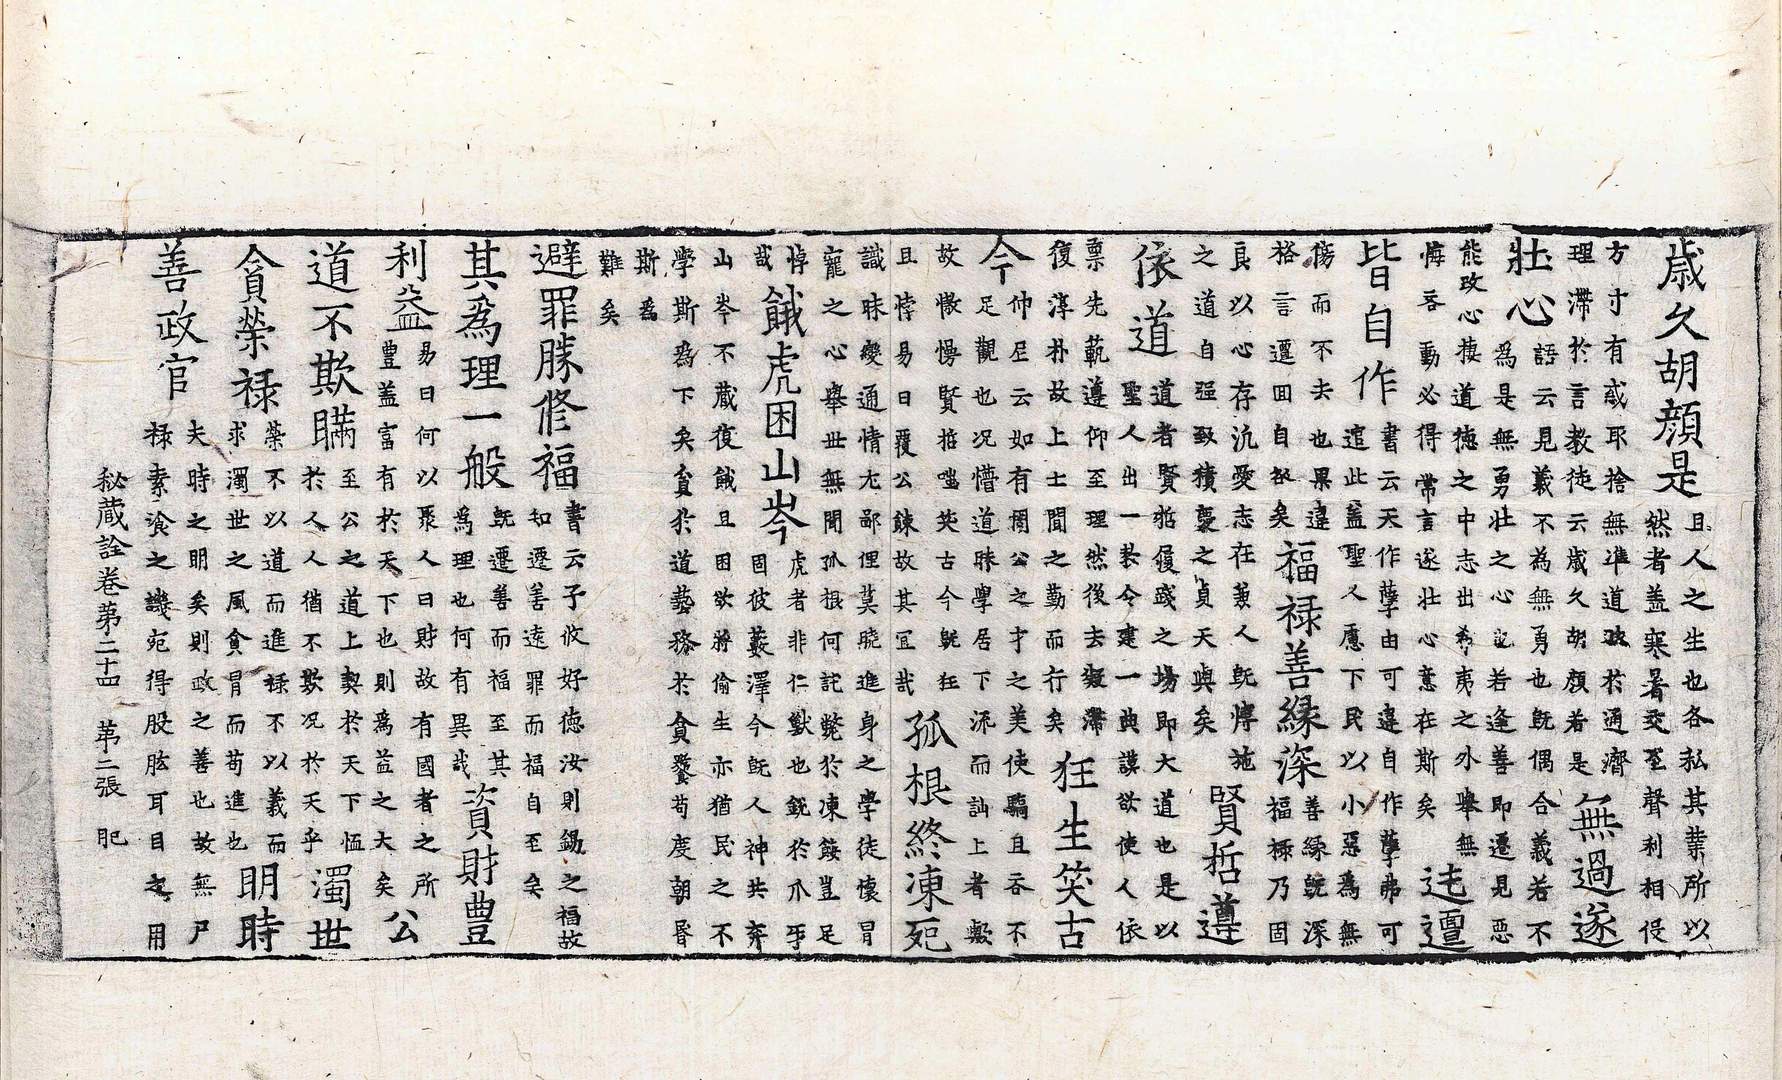 歳久胡顔是
且人之生也各私其業所以
然者盖寒暑交至聲利相侵
方寸有惑取捨無準道孜於通濟
理滯於言教徒云歳久胡顔若是
無過遂
壯心
語云見義不為無勇也旣偶合義若不
為是無勇壯之心記若逢善即遷見惡
能改心棲道徳之中志出希夷之外舉無
悔吝動必得常言遂壯心意在斯矣
迍邅
皆自作
書云天作孽由可違自作孽弗可
逭此盖聖人應下民以小惡為無
傷而不去也果違
格言遷囬自欲矣
福禄善緣深
善緣旣深
福極乃固
良以心存汎愛志在兼人旣慱施
之道自强致積慶之貞天與矣
賢哲遵
依道
道者賢哲履踐之場即大道也是以
聖人出一教令建一典謨欲使人依
票先範遵仰至理然後去礙滯
復淳朴故上士聞之勤而行矣
狂生笑古
今
仲尼云如有周公之才之美使驕且吝不
足觀也况懵道昧學居下流而訕上者歟
故慠慢賢哲嗤笑古今旣狂
且悖易曰覆公餗故其宜哉
孤根終凍死
識昧變通情尤鄙俚莫曉進身之學徒懷冒
寵之心舉世無聞孤根何託斃於凍餒豈足
悼
哉
餓虎困山岑
虎者非仁獸也銳於爪牙
固彼藪澤今旣人神共弃
山岑不蔵復餓且困欲將偷生亦猶民之不
學斯為下矣負於道藝務於貪饕苟度朝昏
斯為
難矣
避罪勝修福
書云予攸好徳汝則錫之福故
知遷善逺罪而福自至矣
其爲理一般
旣遷善而福至其
為理也何有異哉
資財豊
利益
易曰何以聚人曰財故有國者之所
豊盖富有於天下也則為益之大矣
公
道不欺瞞
至公之道上契於天下恤
於人人猶不欺况於天乎
濁世
貪榮禄
榮不以道而進禄不以義而
求濁世之風貪冒而苟進也
明時
善政官
夫時之明矣則政之善也故無尸
禄素飡之譏宛得股肱耳目之用
秘蔵詮卷苐二十四 苐二張 肥